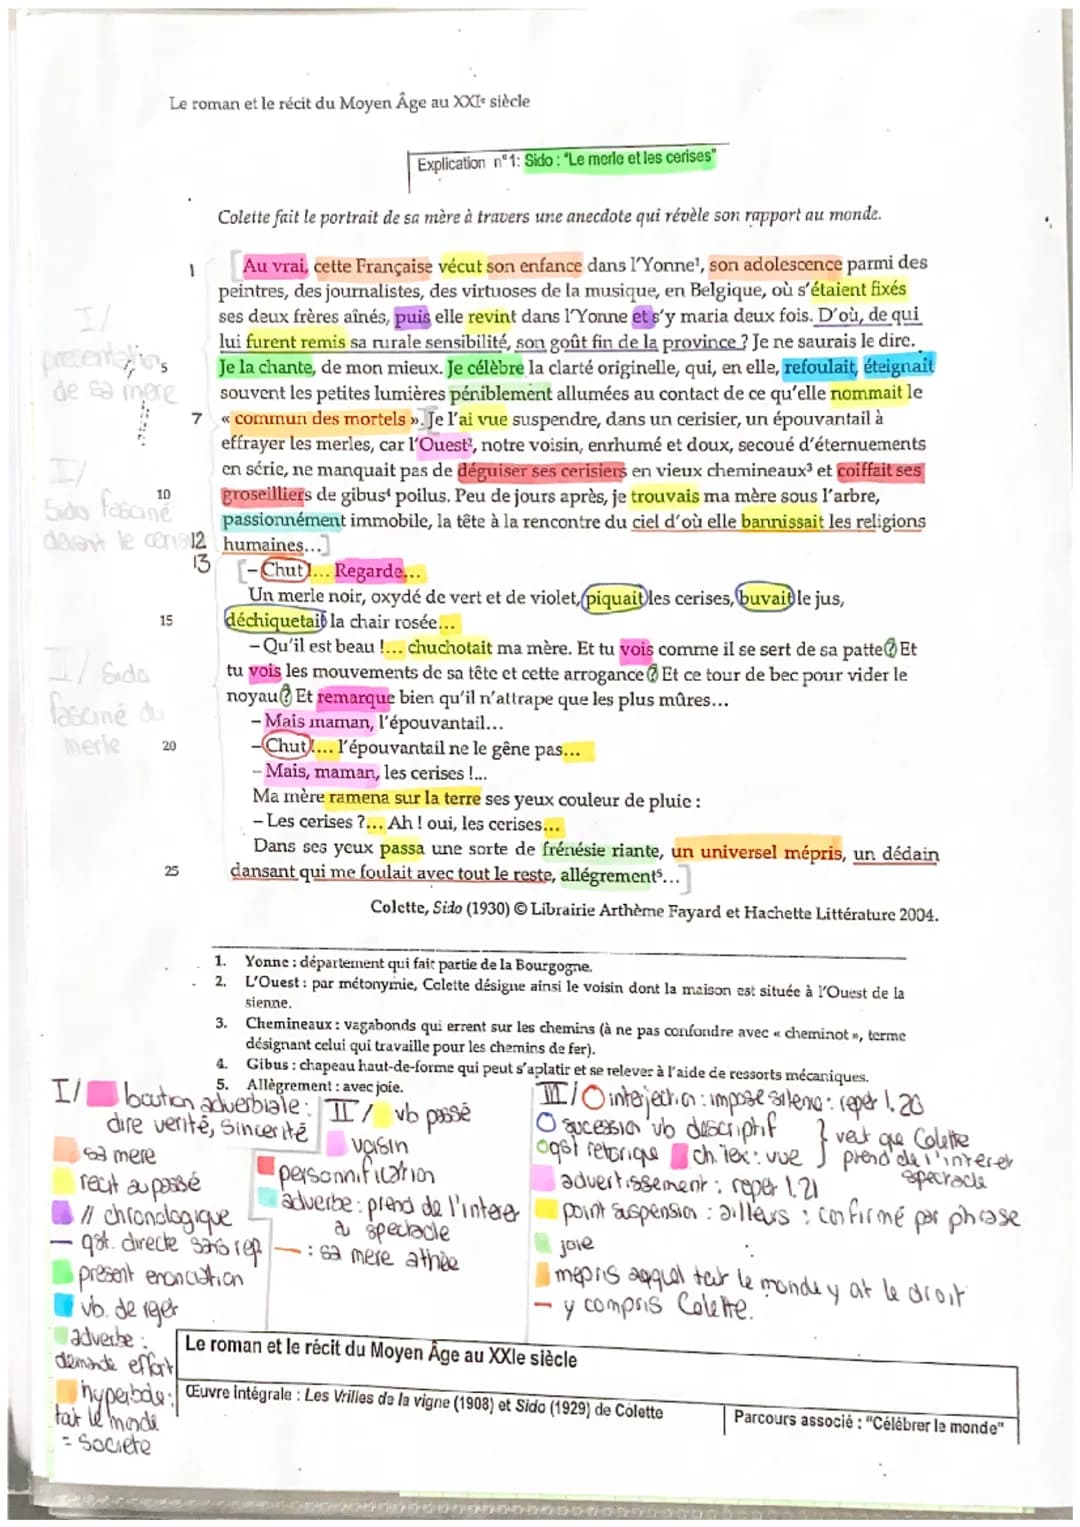 Le roman et le récit du Moyen Âge au XXIe siècle
Explication n°1: Sido : "Le merle et les cerises"
Colette fait le portrait de sa mère à travers une anecdote qui révèle son rapport au monde.
1
Au vrai, cette Française vécut son enfance dans l'Yonne¹, son adolescence parmi des
peintres, des journalistes, des virtuoses de la musique, en Belgique, où s'étaient fixés
ses deux frères aînés, puis elle revint dans l'Yonne et s'y maria deux fois. D'où, de qui
lui furent remis sa rurale sensibilité, son goût fin de la province ? Je ne saurais le dire.
5
Je la chante, de mon mieux. Je célèbre la clarté originelle, qui, en elle, refoulait, éteignait
souvent les petites lumières péniblement allumées au contact de ce qu'elle nommait le
7
« commun des mortels ». Je l'ai vue suspendre, dans un cerisier, un épouvantail à
effrayer les merles, car l'Ouest², notre voisin, enrhumé et doux, secoué d'éternuements
en série, ne manquait pas de déguiser ses cerisiers en vieux chemineaux³ et coiffait ses
10
groseilliers de gibus⁴ poilus. Peu de jours après, je trouvais ma mère sous l'arbre,
passionnément immobile, la tête à la rencontre du ciel d'où elle bannissait les religions
12
humaines...
13
– Chut !... Regarde...
Un merle noir, oxydé de vert et de violet, piquait les cerises, buvait le jus,
15
déchiquetait la chair rosée...
– Qu'il est beau !... chuchotait ma mère. Et tu vois comme il se sert de sa patte ? Et
tu vois les mouvements de sa tête et cette arrogance ? Et ce tour de bec pour vider le
noyau ? Et remarque bien qu'il n'attrape que les plus mûres...
– Mais maman, l'épouvantail...
20
– Chut !... l'épouvantail ne le gêne pas...
– Mais, maman, les cerises !...
Ma mère ramena sur la terre ses yeux couleur de pluie :
– Les cerises ?... Ah ! oui, les cerises...
Dans ses yeux passa une sorte de frénésie riante, un universel mépris, un dédain
25
dansant qui me foulait avec tout le reste, allégrement⁵...
Colette, Sido (1930) © Librairie Arthème Fayard et Hachette Littérature 2004.
I/
presentation
de sa mere
I/
Sido fasciné
devant le
II/ Sido
fasciné du
merle
1. Yonne : département qui fait partie de la Bourgogne.
2. L'Ouest : par métonymie, Colette désigne ainsi le voisin dont la maison est située à l'Ouest de la
sienne.
3. Chemineaux : vagabonds qui errent sur les chemins (à ne pas confondre avec « cheminot », terme
désignant celui qui travaille pour les chemins de fer).
4. Gibus : chapeau haut-de-forme qui peut s'aplatir et se relever à l'aide de ressorts mécaniques.
5. Allègrement : avec joie.
I/ locution adverbiale :
dire verité, sincerité
sa mere
recit au passé
// chronologique
qst. directe sans rep
présent enonciation
vb. de rejet
adverbe :
demande effort
hyperbole :
tout le monde
= societe
II/ vb passé
voisin
personnification
adverbe : prend de l'interer
au spectacle
: sa mere athée
III/ interjection : impose silence : reper l.20
sucession vb descriptif
qst retorique ch. lex : vue
veut que Colette
prend de l'interer
spectacle
advertissement : reper l.21
point suspension : ailleurs : confirmé par phrase
joie
mepris auquel tout le monde y at le droit
y compris Colette.
Le roman et le récit du Moyen Âge au XXIe siècle
Œuvre intégrale : Les Vrilles de la vigne (1908) et Sido (1929) de Colette
Parcours associé : "Célébrer le monde"